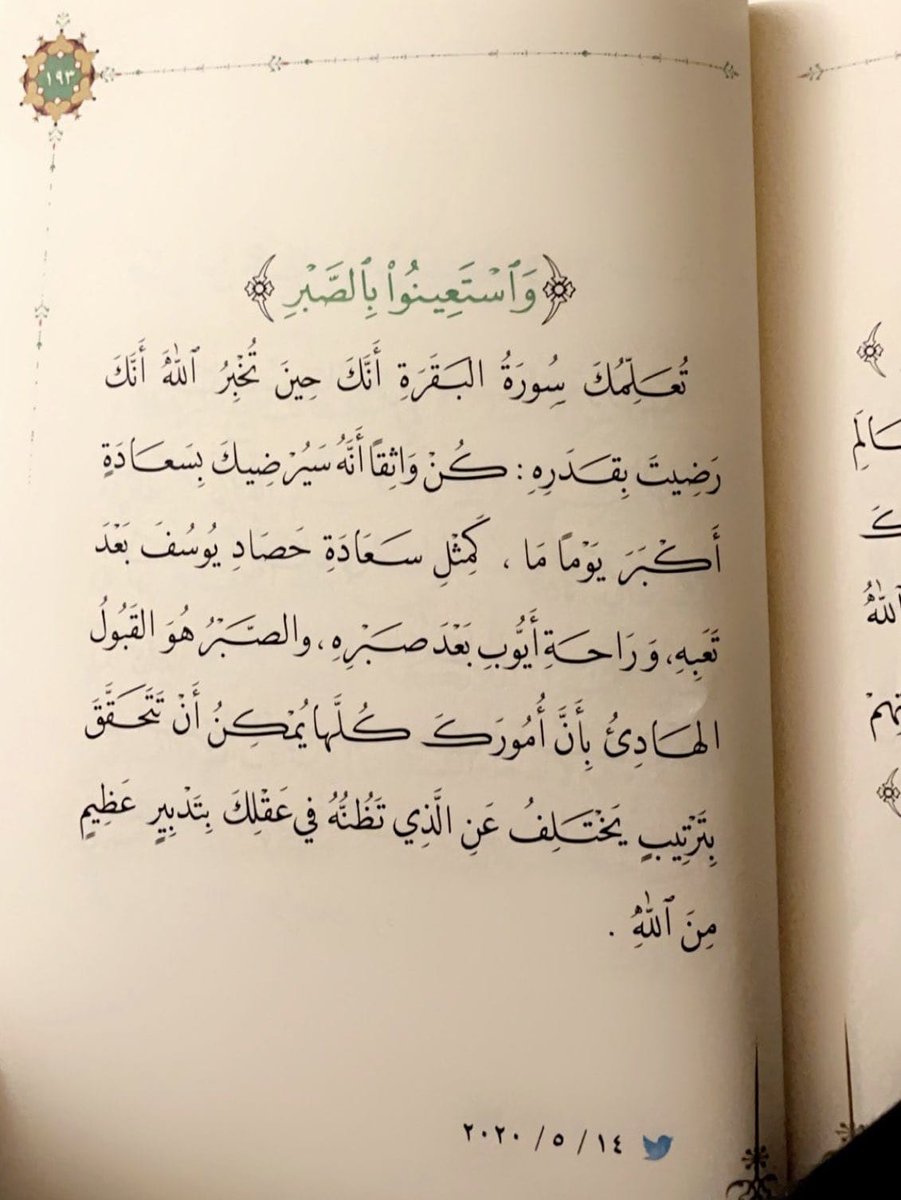 ١٩٣
﴿وَٱسْتَعِينُوا۟ بِٱلصَّبْرِ﴾
تُعَلِّمُكَ سُورَةُ البَقَرَةِ أَنَّكَ حِينَ تُخْبِرُ ٱللَّهَ أَنَّكَ
رَضِيتَ بِقَدَرِهِ : كُنْ وَاثِقاً أَنَّهُ سَيُرْضِيكَ بِسَعَادَةٍ
أَكْبَرَ يَوْماً مَا ، كَمِثْلِ سَعَادَةِ حَصَادِ يُوسُفَ بَعْدَ
تَعَبِهِ، وَرَاحَةِ أَيُّوبِ بَعْدَ صَبْرِهِ ، والصَّبْرُ هُوَ القَبُولُ
الهَادِئُ بِأَنَّ أُمُورَكَ كُلَّها يُمْكِنُ أَنْ تَتَحَقَّقَ
بِتَرْتِيبٍ يَخْتَلِفُ عَنِ الَّذِي تَظُنُّهُ في عَقْلِكَ بِتَدْبِيرٍ عَظِيمٍ
مِنَ ٱللَّهِ .
١٤ / ٥ / ٢٠٢٠